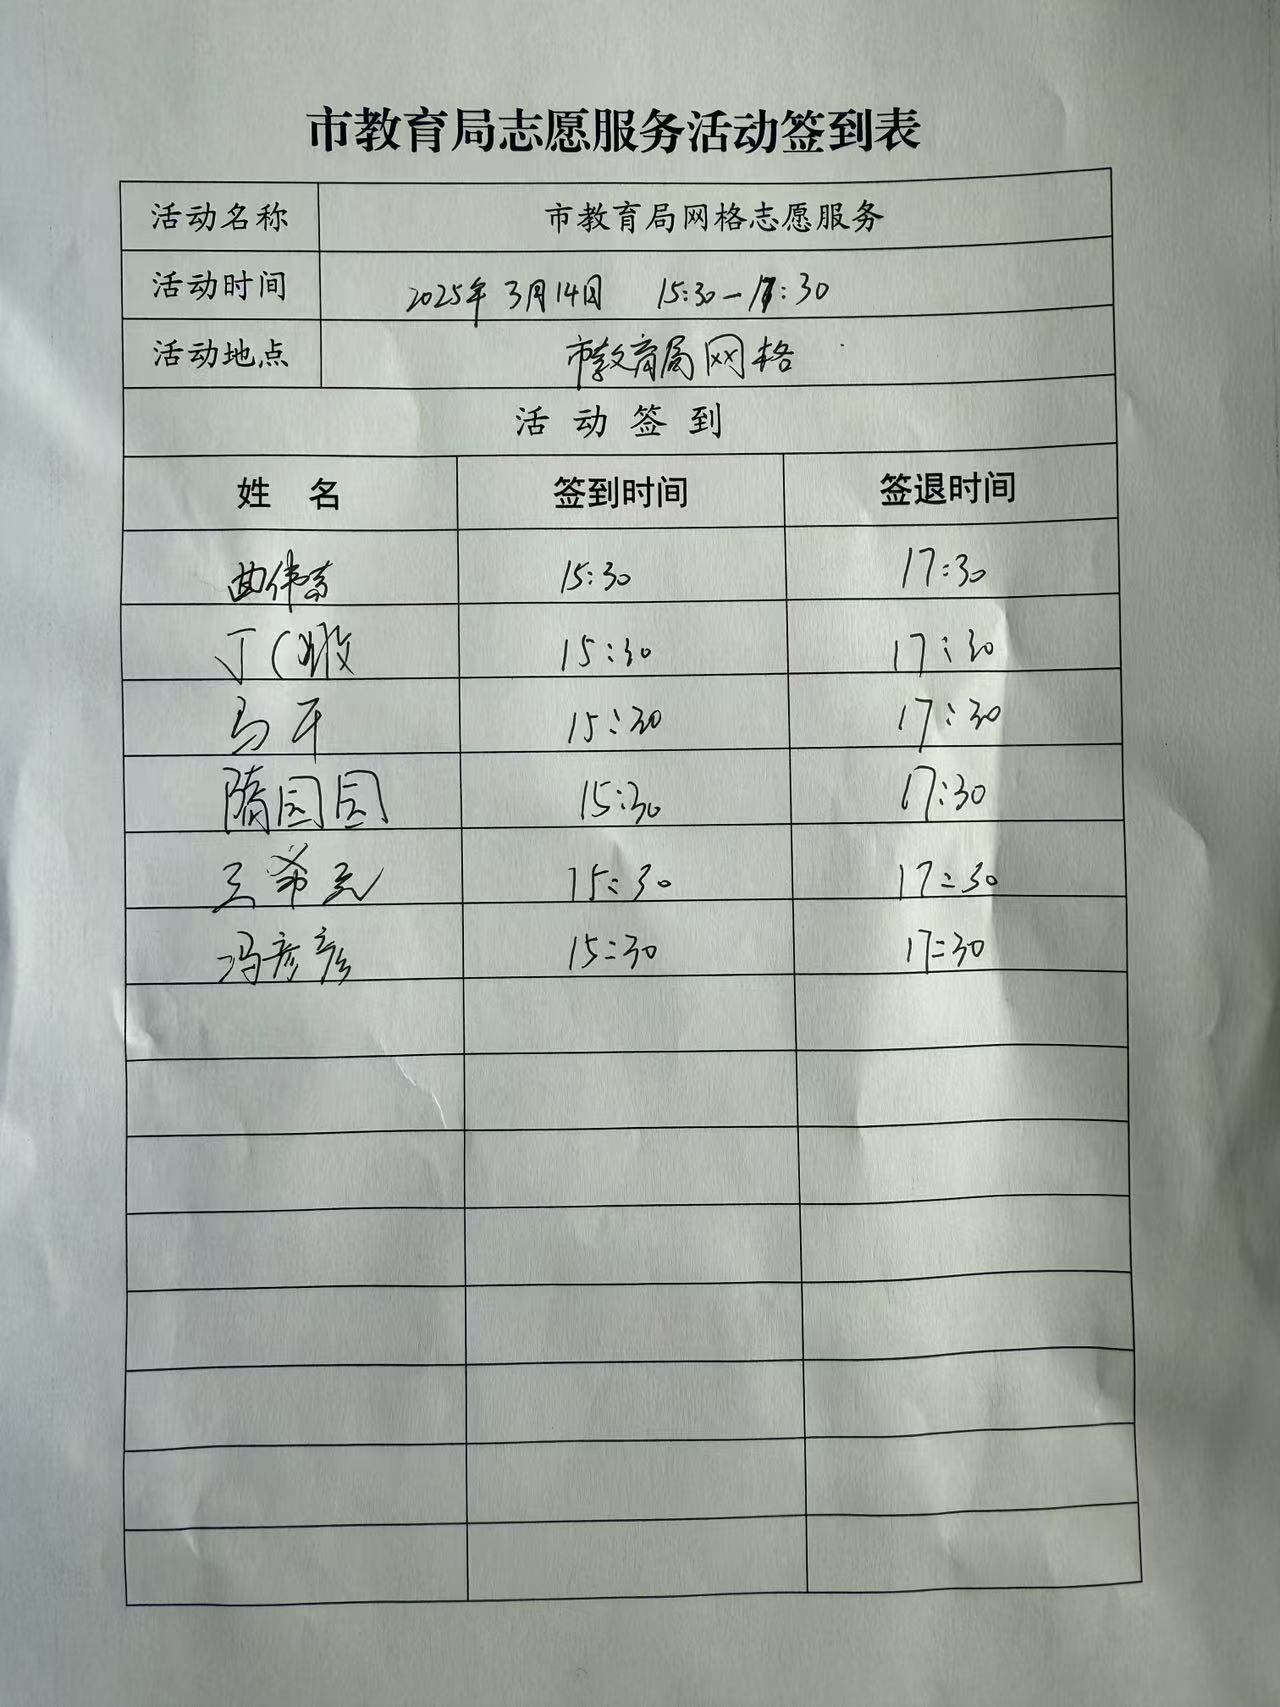 市教育局志愿服务活动签到表
活动名称 市教育局网格志愿服务
活动时间 2025年3月14日 15:30-17:30
活动地点 市教育局网格
活动签到
姓 名 签到时间 签退时间
15:30 17:30
15:30 17:30
15:30 17:30
隋园园 15:30 17:30
15:30 17:30
冯彦彦 15:30 17:30